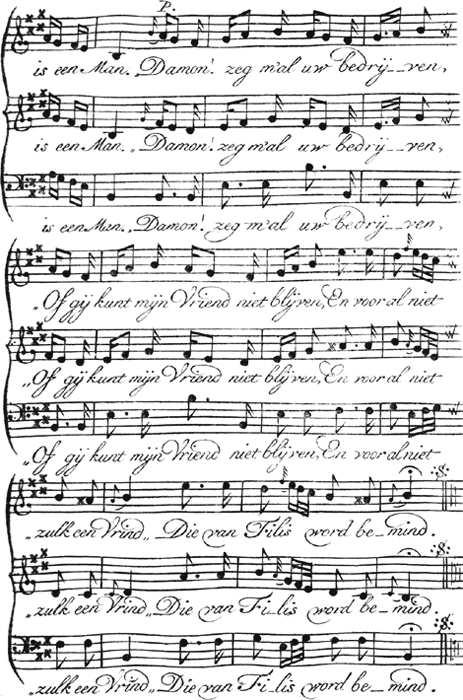 P.
is een Man. „Damon! zeg m'al uw bedrij_ _ven,
is een Man. „Damon! zeg m'al uw bedrij_ _ven,
is een Man. „Damon! zeg m'al uw bedrij_ _ven,
„Of gij kunt mijn Vriend niet blijven, En voor al niet
„Of gij kunt mijn Vriend niet blijven, En voor al niet
„Of gij kunt mijn Vriend niet blijven, En voor al niet
„zulk een Vrind„ Die van Filis word be_mind.
„zulk een Vrind„ Die van Fi_lis word be_mind.
„zulk een Vrind„ Die van Filis word be_mind.